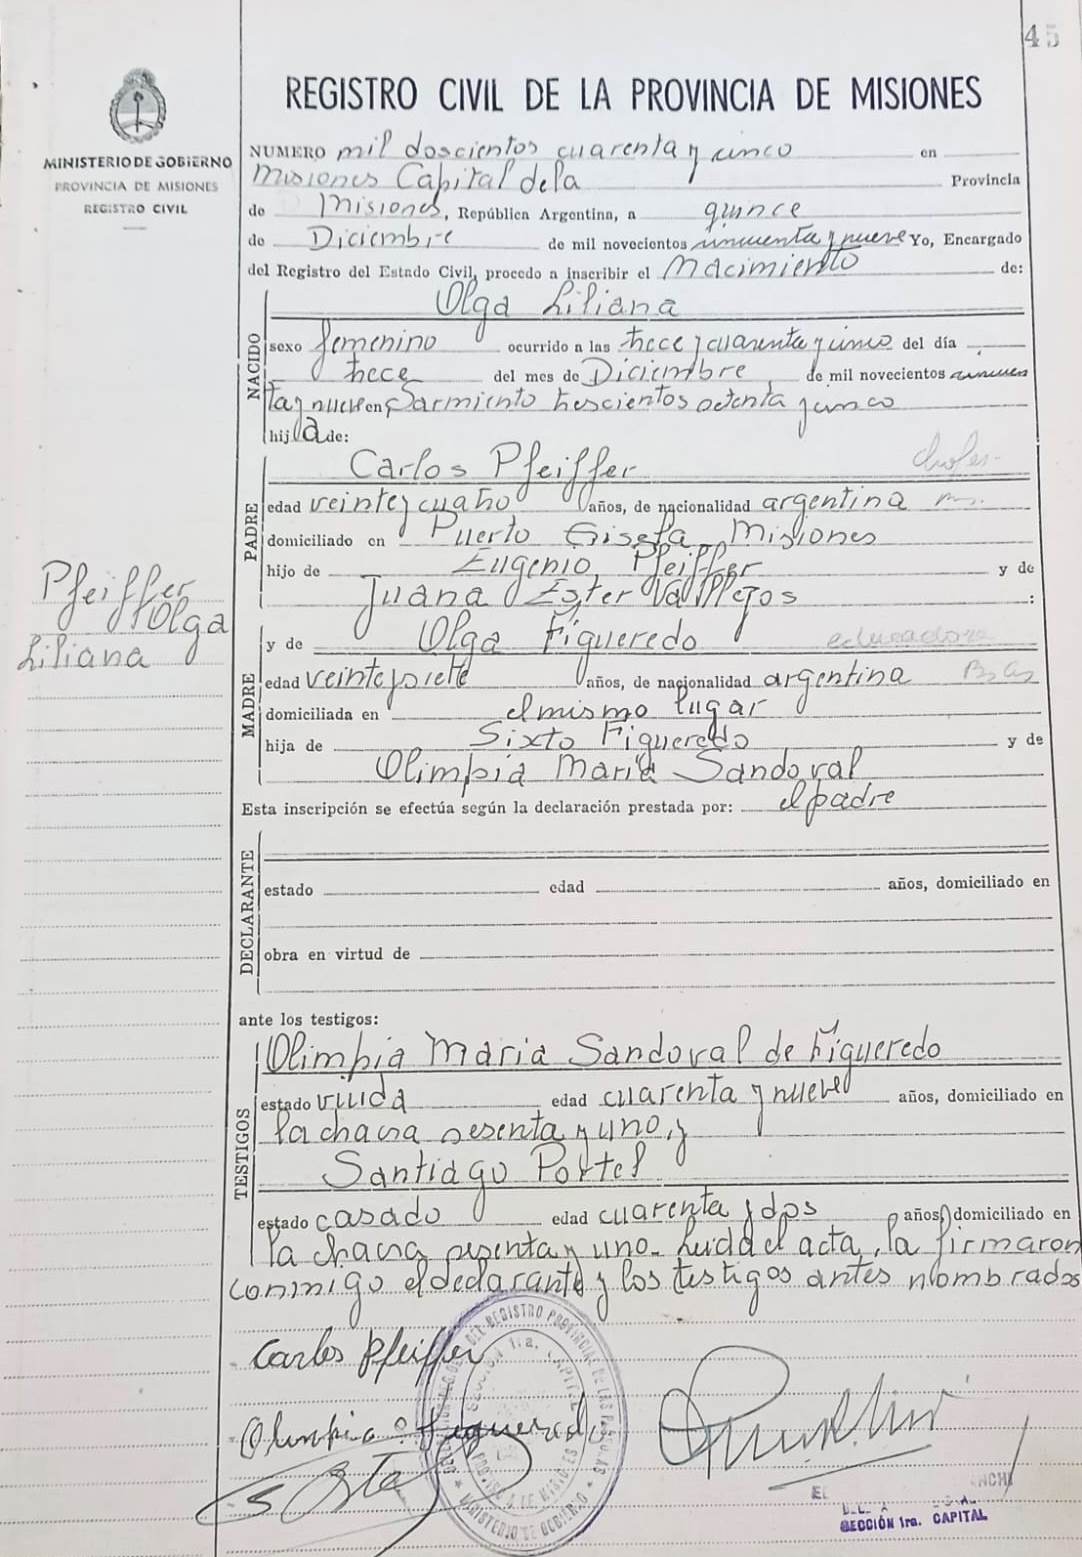 45
MINISTERIO DE GOBIERNO
PROVINCIA DE MISIONES
REGISTRO CIVIL
REGISTRO CIVIL DE LA PROVINCIA DE MISIONES
NUMERO mil doscientos cuarenta y cinco en
Misiones Capital de la Provincia
de Misiones, República Argentina, a quince
de Diciembre de mil novecientos cincuenta y nueve Yo, Encargado
del Registro del Estado Civil, procedo a inscribir el Nacimiento de:
NACIDO
Olga Liliana
sexo femenino ocurrido a las trece y cuarenta y cinco del día
trece del mes de Diciembre de mil novecientos cincuen
ta y nueve en Sarmiento trescientos octenta y cinco
hija de:
PADRE
Carlos Pfeiffer chofer
edad veinte y cuatro años, de nacionalidad argentina
domiciliado en Puerto Gisela, Misiones
hijo de Eugenio Pfeiffer y de
Juana Ester Vallejos :
Pfeiffer
Olga
Liliana
MADRE
y de Olga Figueredo educadora
edad veinte y siete años, de nacionalidad argentina Bs As
domiciliada en el mismo lugar
hija de Sixto Figueredo y de
Olimpia Maria Sandoval
Esta inscripción se efectúa según la declaración prestada por: el padre
DECLARANTE
estado edad años, domiciliado en
obra en virtud de
ante los testigos:
TESTIGOS
Olimpia Maria Sandoval de Figueredo
estado viuda edad cuarenta y nueve años, domiciliado en
la chacra sesenta y uno, y
Santiago Portel
estado casado edad cuarenta y dos años, domiciliado en
la chacra sesenta y uno. Leida el acta, la firmaron
conmigo el declarante y los testigos antes nombrados
Carlos Pfeiffer
Olimpia Figueredo
SECCIÓN 1ra. CAPITAL